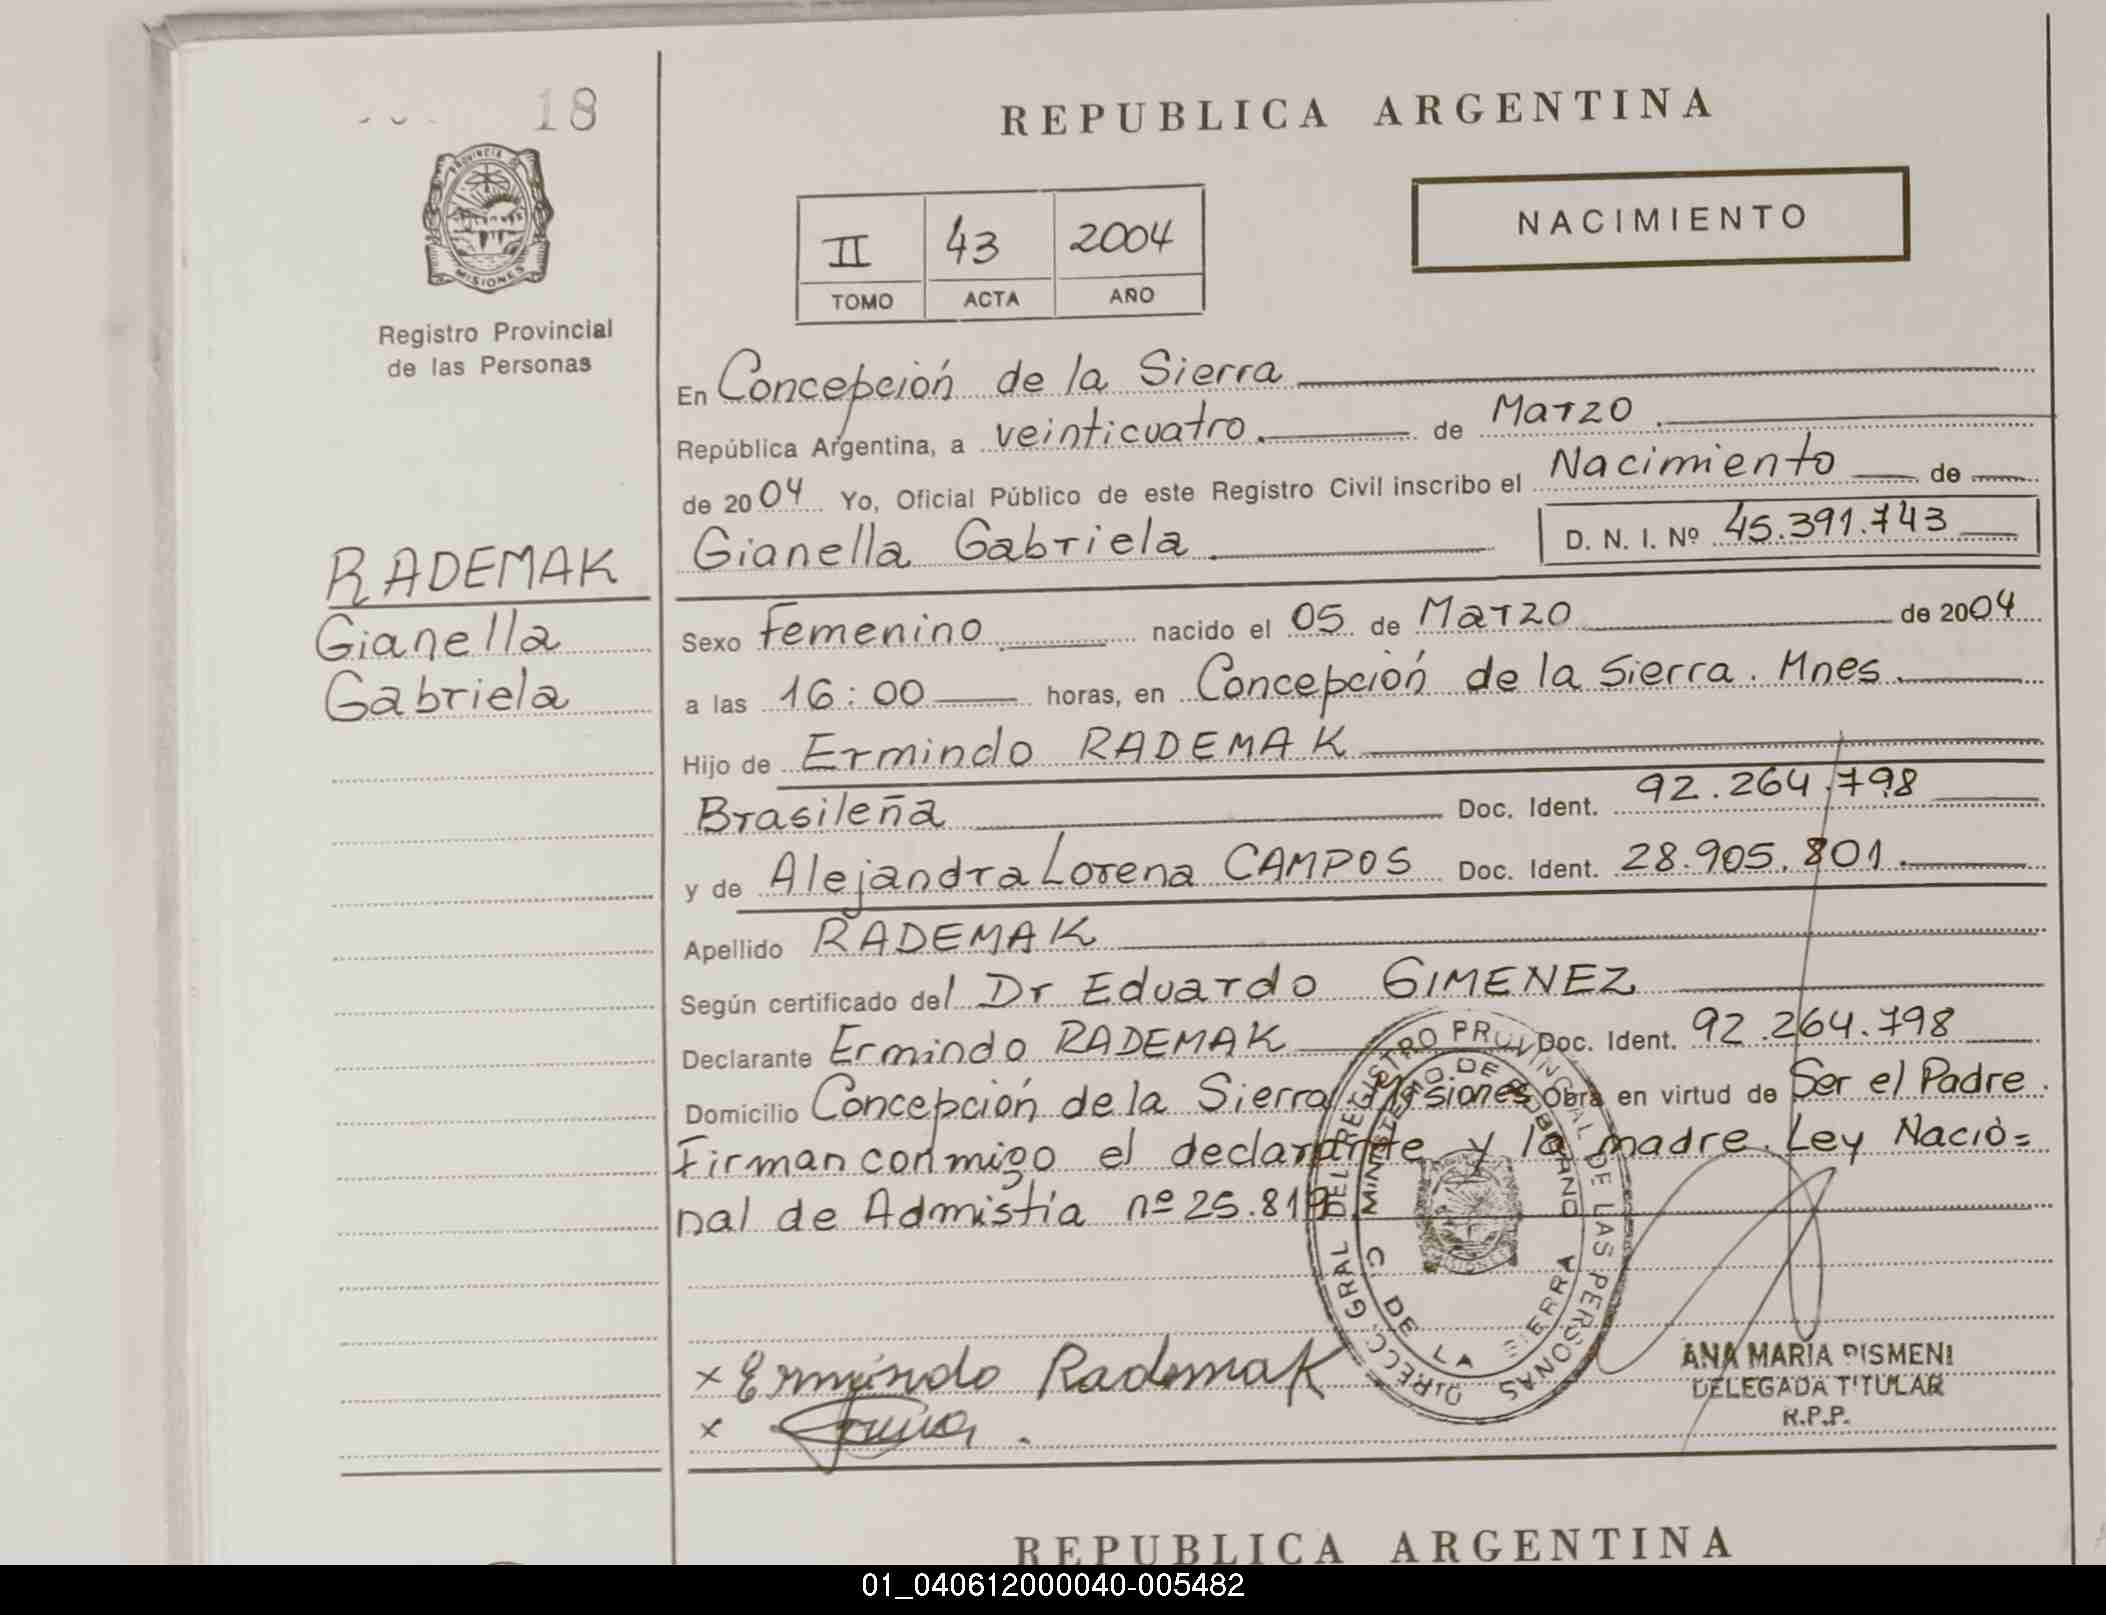 18
PROVINCIA DE
MISIONES
Registro Provincial
de las Personas
REPUBLICA ARGENTINA
II 43 2004
TOMO ACTA AÑO
NACIMIENTO
En Concepción de la Sierra
República Argentina, a veinticuatro. de Marzo
de 2004 Yo, Oficial Público de este Registro Civil inscribo el Nacimiento de
Gianella Gabriela D. N. I. Nº 45.391.743
RADEMAK
Gianella
Gabriela
Sexo Femenino nacido el 05 de Marzo de 2004
a las 16:00 horas, en Concepción de la Sierra. Mnes.
Hijo de Ermindo RADEMAK
Brasileña Doc. Ident. 92.264.798
y de Alejandra Lorena CAMPOS Doc. Ident. 28.905.801.
Apellido RADEMAK
Según certificado del Dr Eduardo GIMENEZ
Declarante Ermindo RADEMAK Doc. Ident. 92.264.798
Domicilio Concepción de la Sierra Misiones Obra en virtud de Ser el Padre.
Firman conmigo el declarante y la madre. Ley Nacio=
nal de Admistía nº 25.819
DIRECC. GRAL DEL REGISTRO PROVINCIAL DE LAS PERSONAS
MINISTERIO DE GOBIERNO
C. DE LA SIERRA
x Ermindo Rademak
x
ANA MARIA PISMENI
DELEGADA TITULAR
R.P.P.
REPUBLICA ARGENTINA
01_040612000040-005482